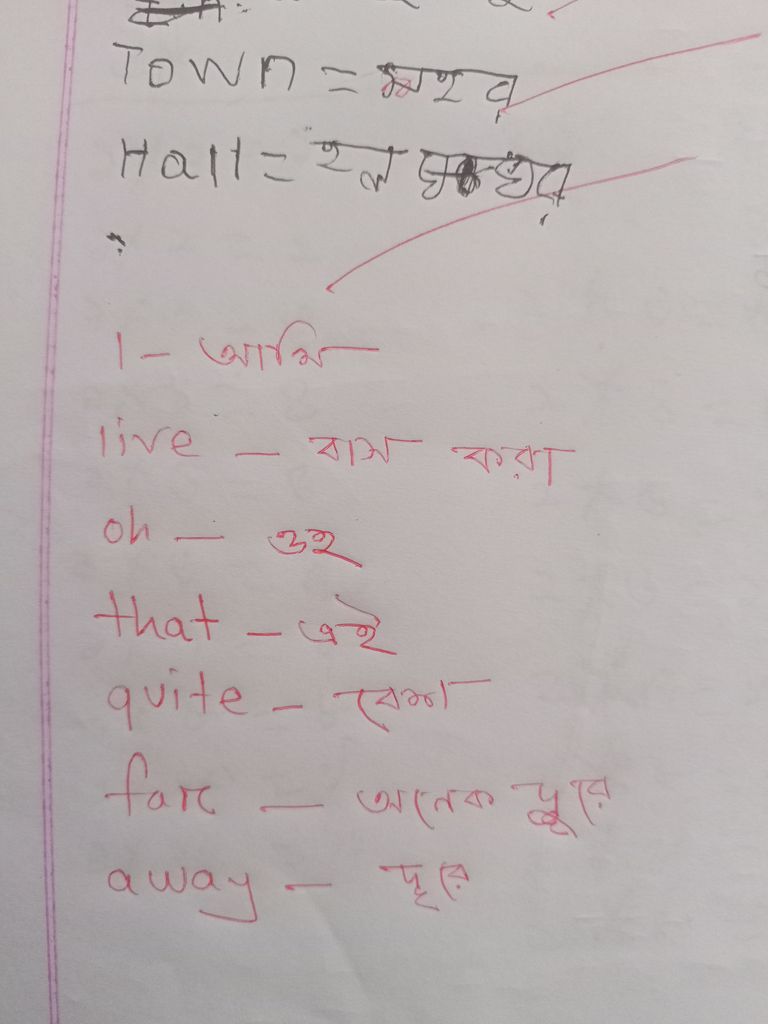 Town = শহর
Hall = হল ঘর
I - আমি
live - বাস করা
oh - ওহ
that - এই
quite - বেশ
far - অনেক দূরে
away - দূরে